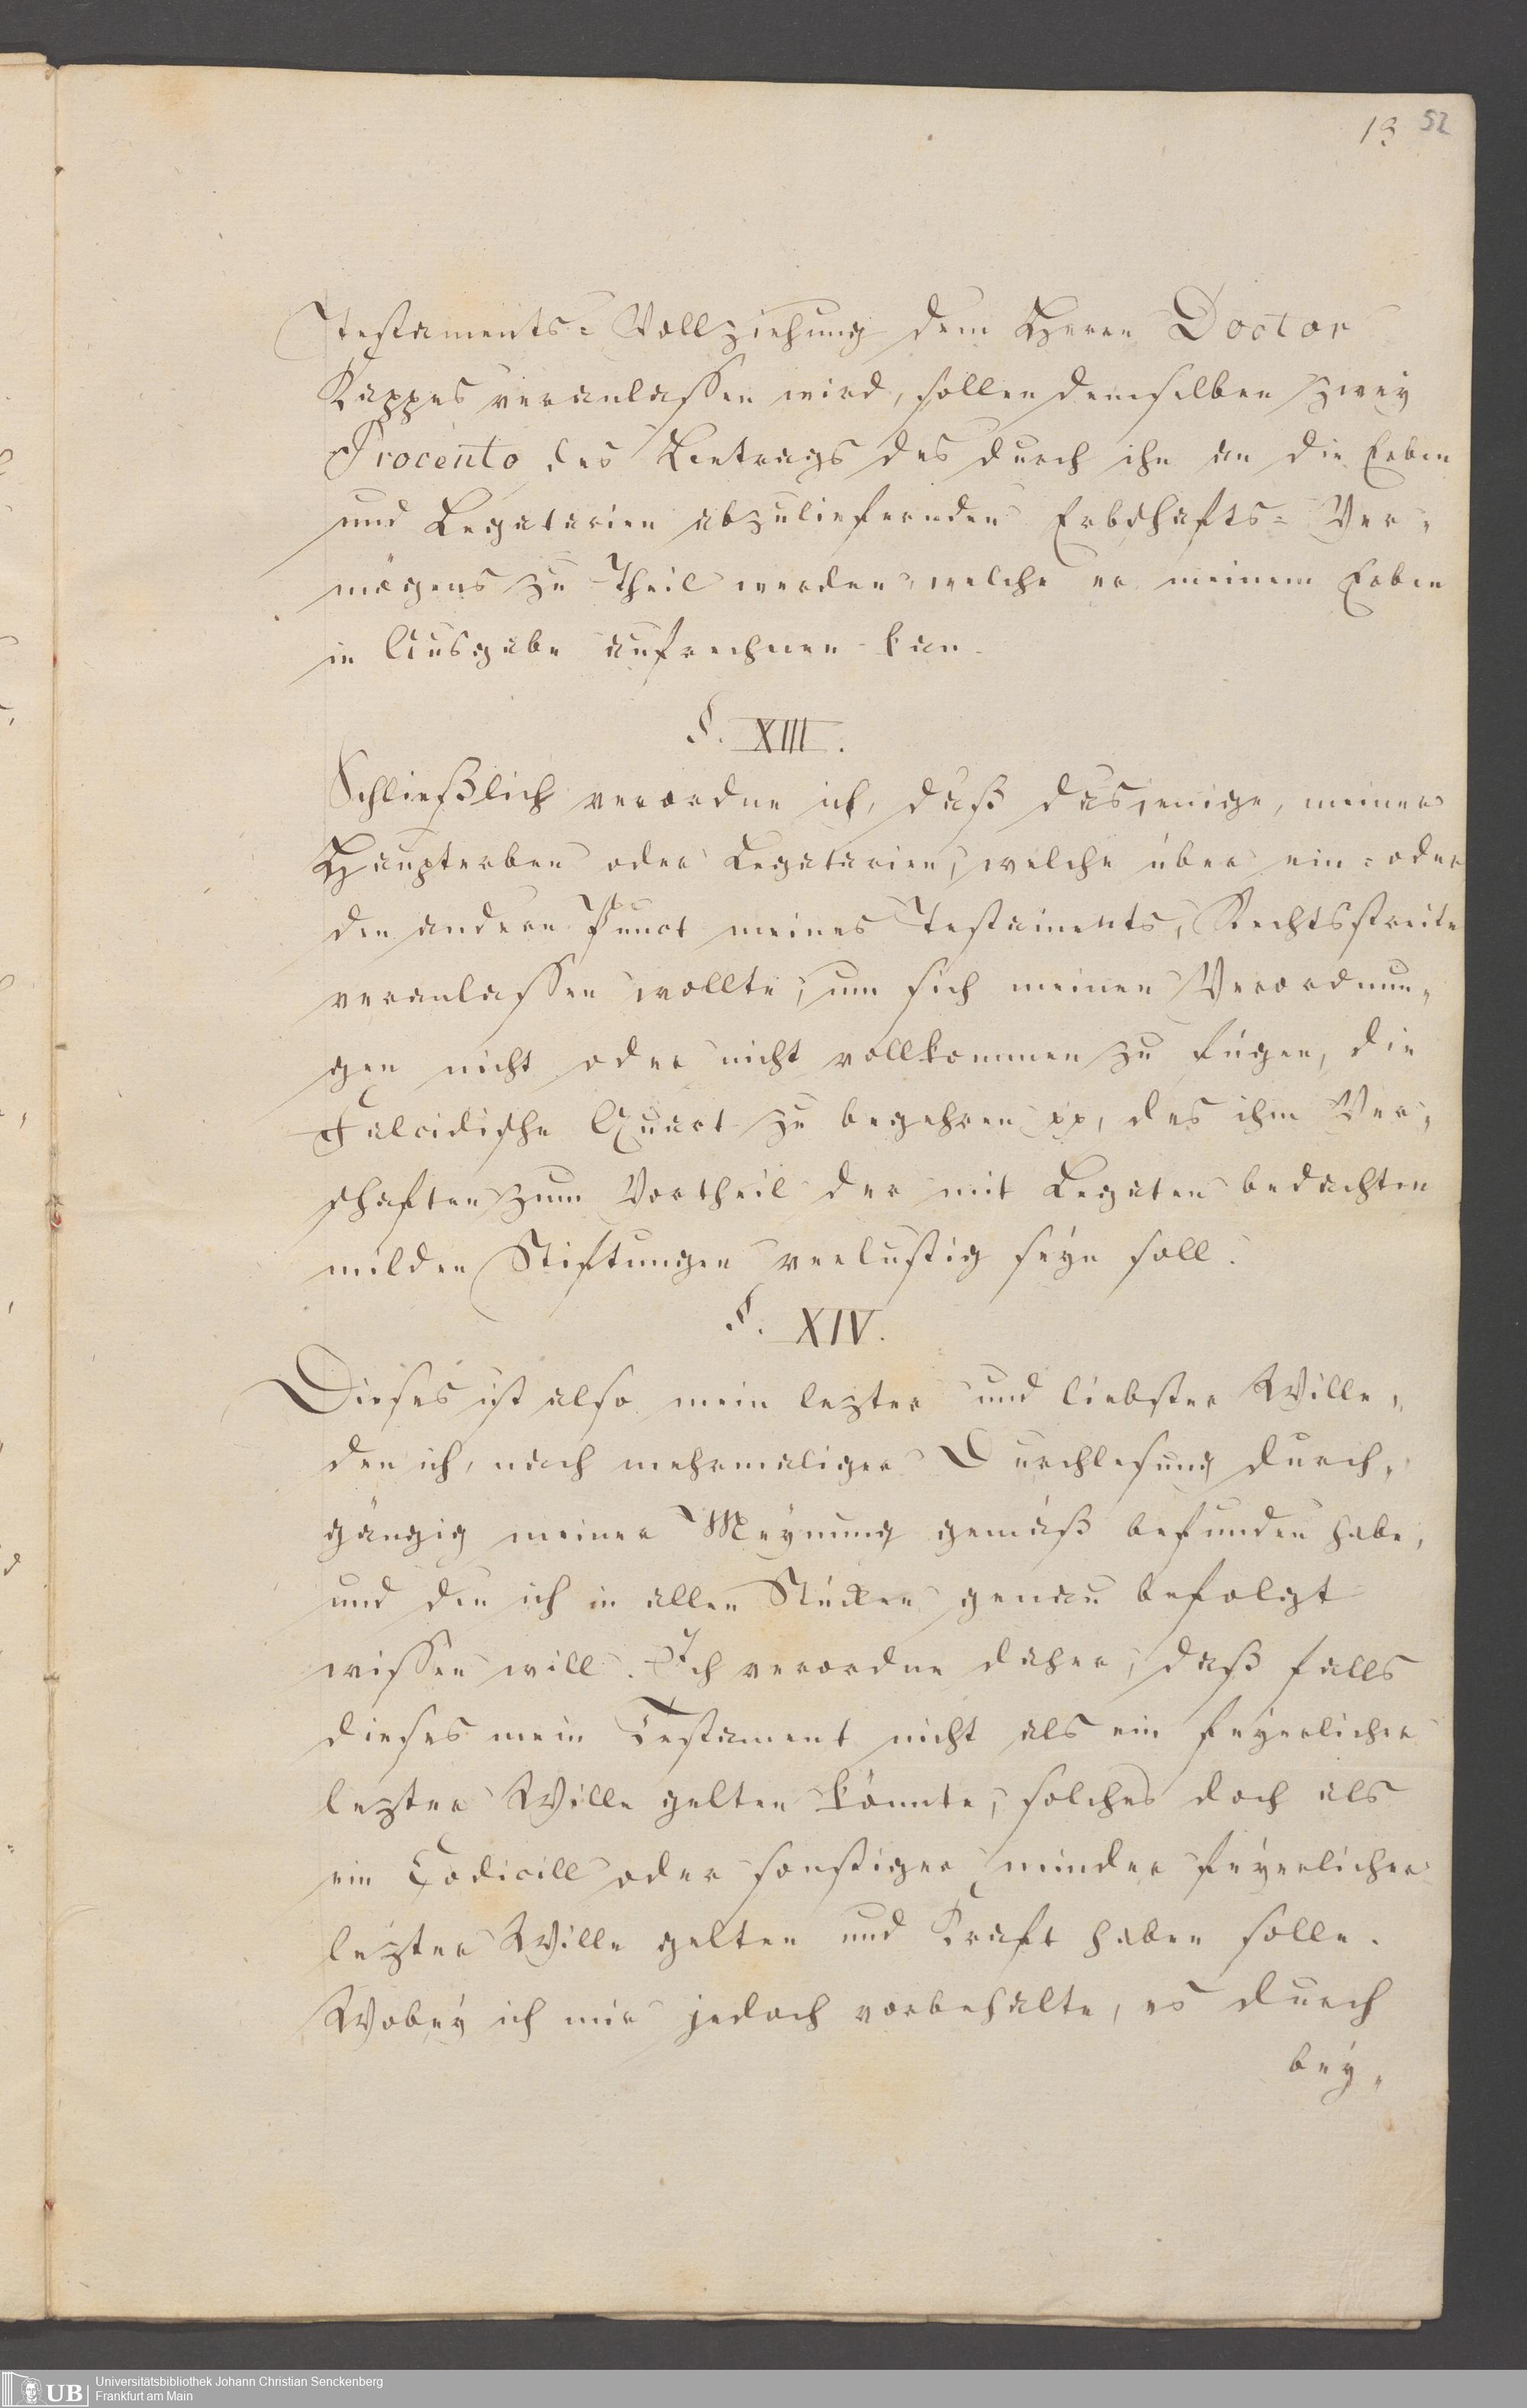 13 52
Testaments= Vollziehung dem Herrn Doctor
Kappes veranlassen wird, sollen demselben zwey
Procento des Betrags des durch ihn an die Erben
und Legatarien abzuliefernden Erbschafts= Ver„
mögens zu Theil werden, welche er meinem Erben
in Ausgabe aufrechnen kan.
§. XIII.
Schließlich verordne ich, daß dasjenige, meiner
Haupterben oder Legatarien, welche über ein= oder
den andern Punct meines Testaments, Rechtsstreite
veranlassen wollte, um sich meinen Verordnun„
gen nicht oder nicht vollkommen zu fügen, die
Falcidische Quart zu begehren pp, des ihm Ver„
schaften zum Vortheil der mit Legaten bedachten
milden Stiftungen verlustig seyn soll.
§. XIV.
Dieses ist also mein lezter und liebster Wille,
den ich, nach mehrmaliger Durchlesung durch„
gängig meiner Meynung gemäß befunden habe,
und den ich in allen Stücken genau befolgt
wissen will. Ich verordne daher, daß falls
dieses mein Testament nicht als ein feyerlicher
lezter Wille gelten könnte, solches doch als
ein Codicill oder sonstiger minder feyerlicher
lezter Wille gelten und Kraft haben solle.
Wobey ich mir jedoch vorbehalte, es durch
bey„
UB
Universitätsbibliothek Johann Christian Senckenberg
Frankfurt am Main